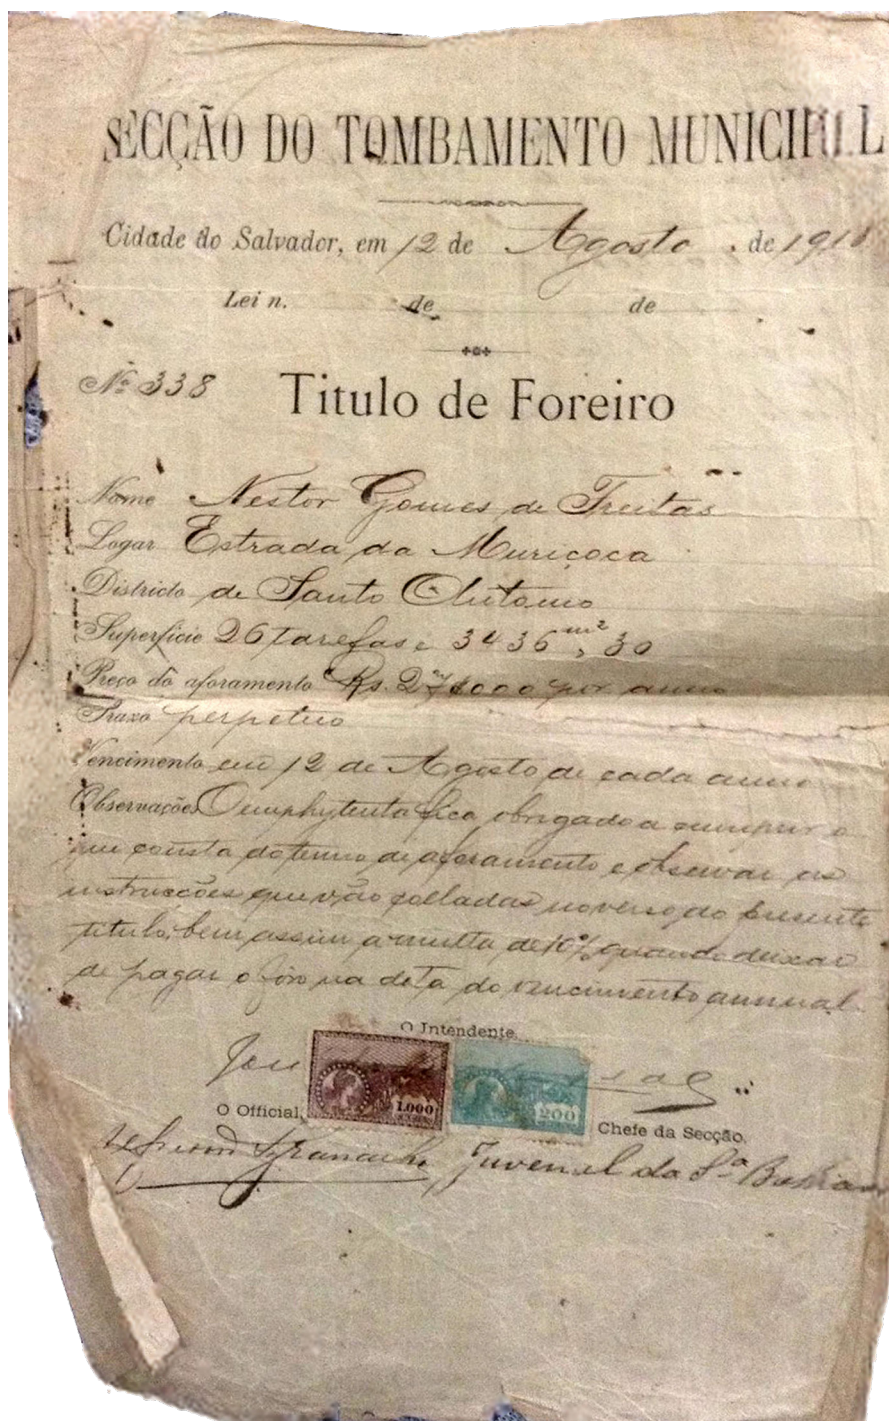 SECÇÃO DO TOMBAMENTO MUNICIPAL
Cidade do Salvador, em 12 de Agosto de 1918
Lei n. de de
Nº 338
Titulo de Foreiro
Nome Nestor Gomes de Freitas
Logar Estrada da Muriçoca
Districto de Santo Antonio
Superficie 26 tarefas e 3436,m² 30
Preço do aforamento Rs. por anno
Praso perpetuo
Vencimento em 12 de Agosto de cada anno
Observações O emphyteuta fica obrigado a cumprir o
que consta do termo de aforamento e observar as
instrucções que vão colladas no verso do presente
titulo, bem assim a multa de 10% quando deixar
de pagar o fôro na data do vencimento annual.
O Intendente,
1.000
200
O Official,
Chefe da Secção,
Juvenal da S.ª Bahia